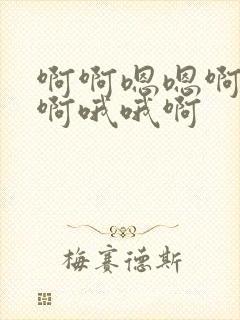 啊啊嗯嗯啊
啊哦哦啊
梅赛德斯